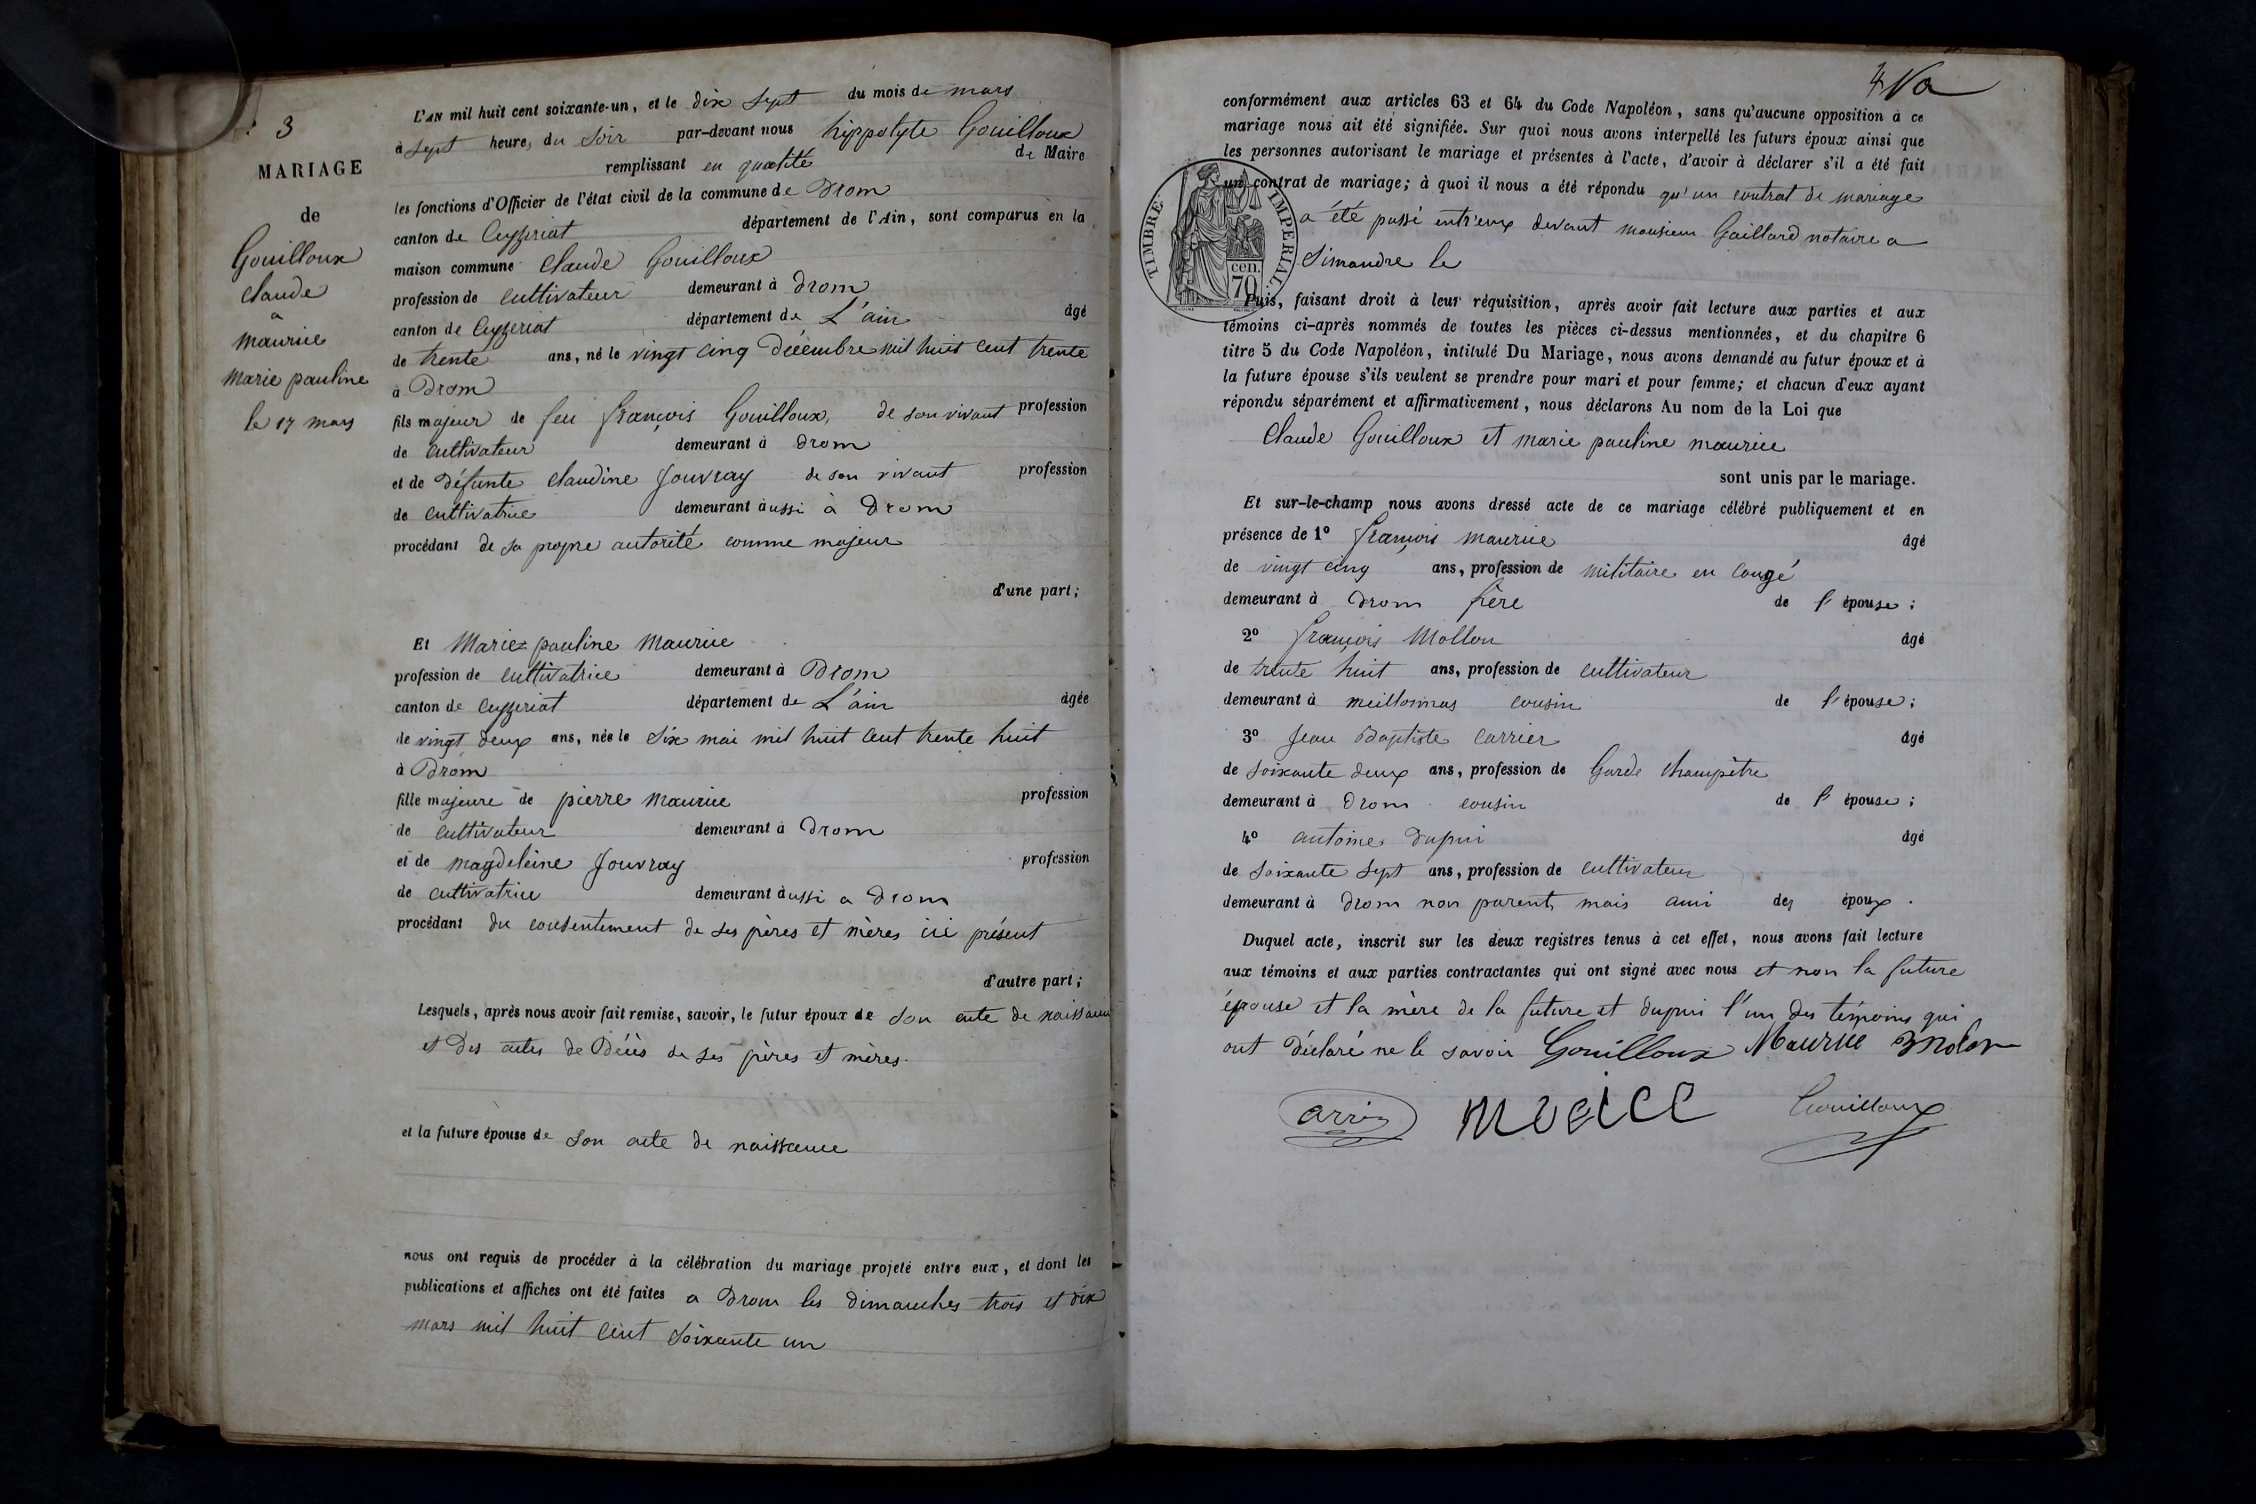 3
MARIAGE
de
Gouilloux
claude
a
maurice
marie pauline
le 17 mars
L'AN mil huit cent soixante-un, et le dix sept du mois de mars
à sept heure, du soir par-devant nous hippolyte Gouilloux
remplissant en qualité de Maire
les fonctions d'Officier de l'état civil de la commune de Drom
canton de Ceyzeriat département de l'Ain, sont comparus en la
maison commune claude Gouilloux
profession de cultivateur demeurant à Drom
canton de Ceyzeriat département de L'ain âgé
de trente ans, né le vingt cinq Décembre mil huit cent trente
à Drom
fils majeur de feu françois Gouilloux, de son vivant profession
de cultivateur demeurant à Drom
et de défunte claudine Jouvray de son vivant profession
de cultivatrice demeurant àussi à Drom
procédant de sa propre autorité comme majeur
d'une part;
Et Marie pauline Maurice
profession de cultivatrice demeurant à Drom
canton de Ceyzeriat département de L'ain âgée
de vingt deux ans, née le six mai mil huit cent trente huit
à Drom
fille majeure de pierre Maurice profession
de cultivateur demeurant à Drom
et de magdeleine Jouvray profession
de cultivatrice demeurant àussi a Drom
procédant du consentement de ses pères et mères ici présent
d'autre part;
Lesquels, après nous avoir fait remise, savoir, le futur époux de son acte de naissance
et des actes de Décès de ses pères et mères.
et la future épouse de son acte de naissance
nous ont requis de procéder à la célébration du mariage projeté entre eux, et dont les
publications et affiches ont été faites a Drom les dimanches trois et dix
mars mil huit cent soixante un
4
conformément aux articles 63 et 64 du Code Napoléon, sans qu'aucune opposition à ce
mariage nous ait été signifiée. Sur quoi nous avons interpellé les futurs époux ainsi que
les personnes autorisant le mariage et présentes à l'acte, d'avoir à déclarer s'il a été fait
un contrat de mariage; à quoi il nous a été répondu qu'un contrat de mariage
a été passé entr'eux devant monsieur Gaillard notaire a
Simandre le
TIMBRE IMPÉRIAL
cen.
70
Puis, faisant droit à leur réquisition, après avoir fait lecture aux parties et aux
témoins ci-après nommés de toutes les pièces ci-dessus mentionnées, et du chapitre 6
titre 5 du Code Napoléon, intitulé Du Mariage, nous avons demandé au futur époux et à
la future épouse s'ils veulent se prendre pour mari et pour femme; et chacun d'eux ayant
répondu séparément et affirmativement, nous déclarons Au nom de la Loi que
Claude Gouilloux et marie pauline maurice
sont unis par le mariage.
Et sur-le-champ nous avons dressé acte de ce mariage célébré publiquement et en
présence de 1º françois maurice âgé
de vingt cinq ans, profession de militaire en congé
demeurant à Drom frère de l' épouse;
2º françois Mollon âgé
de trente huit ans, profession de cultivateur
demeurant à meillonnas cousin de l' épouse;
3º Jean Baptiste carrier âgé
de soixante deux ans, profession de Garde champêtre
demeurant à Drom cousin de l' épouse;
4º antoine dupui âgé
de soixante sept ans, profession de cultivateur
demeurant à Drom non parent mais ami des époux.
Duquel acte, inscrit sur les deux registres tenus à cet effet, nous avons fait lecture
aux témoins et aux parties contractantes qui ont signé avec nous et non la future
épouse et la mère de la future et dupui l'un des témoins qui
ont déclaré ne le savoir Gouilloux Maurice
Gouilloux